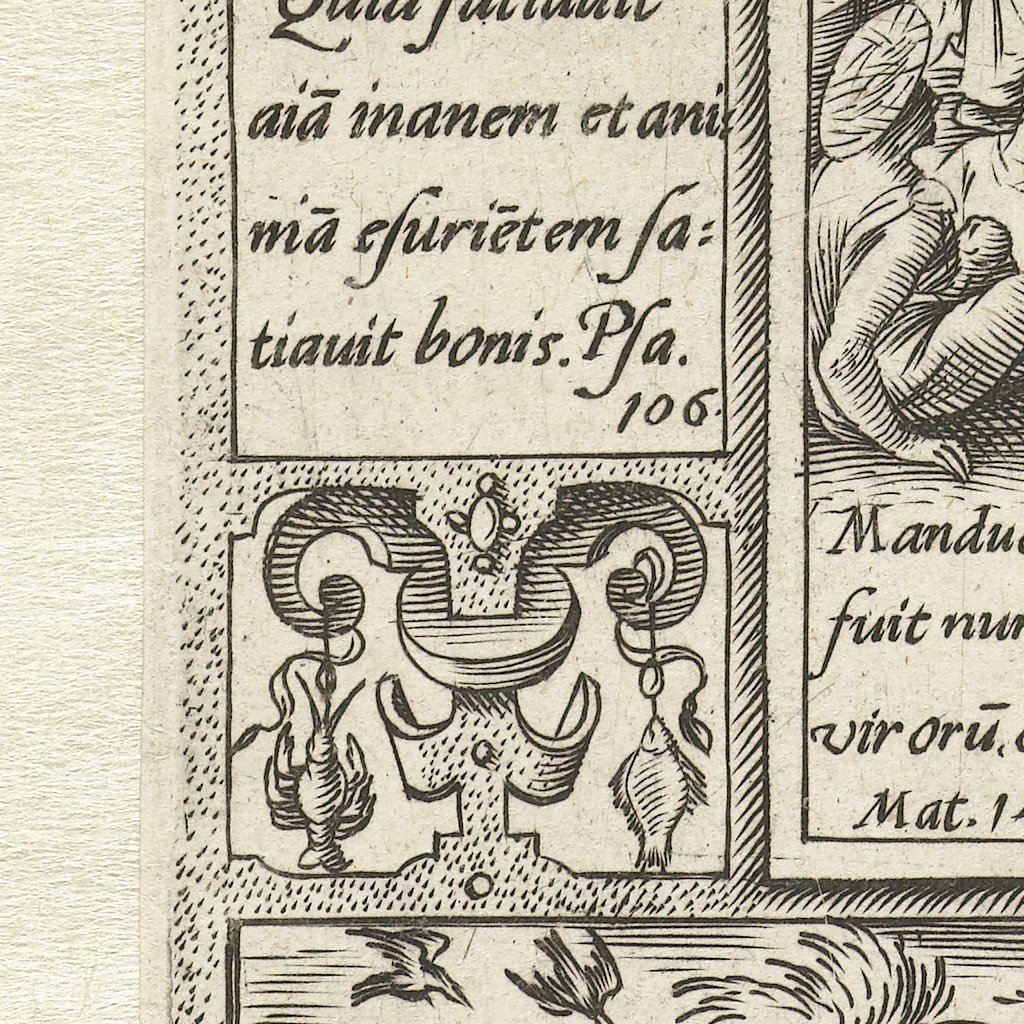 Quia satiauit
aiā inanem et ani
mā eſuriētem ſa:
tiauit bonis. Pſa.
106.
Mandu
fuit nu
virorū,
Mat. 14